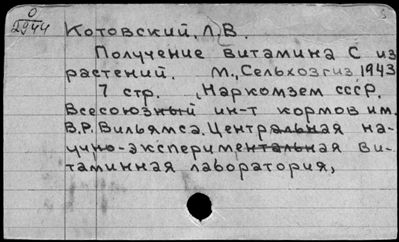 0
2944
Котовский, Л.В.
Получение витамина С из
растений. М., Сельхозгиз 1943
7 стр. Наркомзем СССР.
Всесоюзный ин-т кормов им.
В.Р. Вильямса. Центральная на-
учно-экспериментальная ви-
таминная лаборатория,